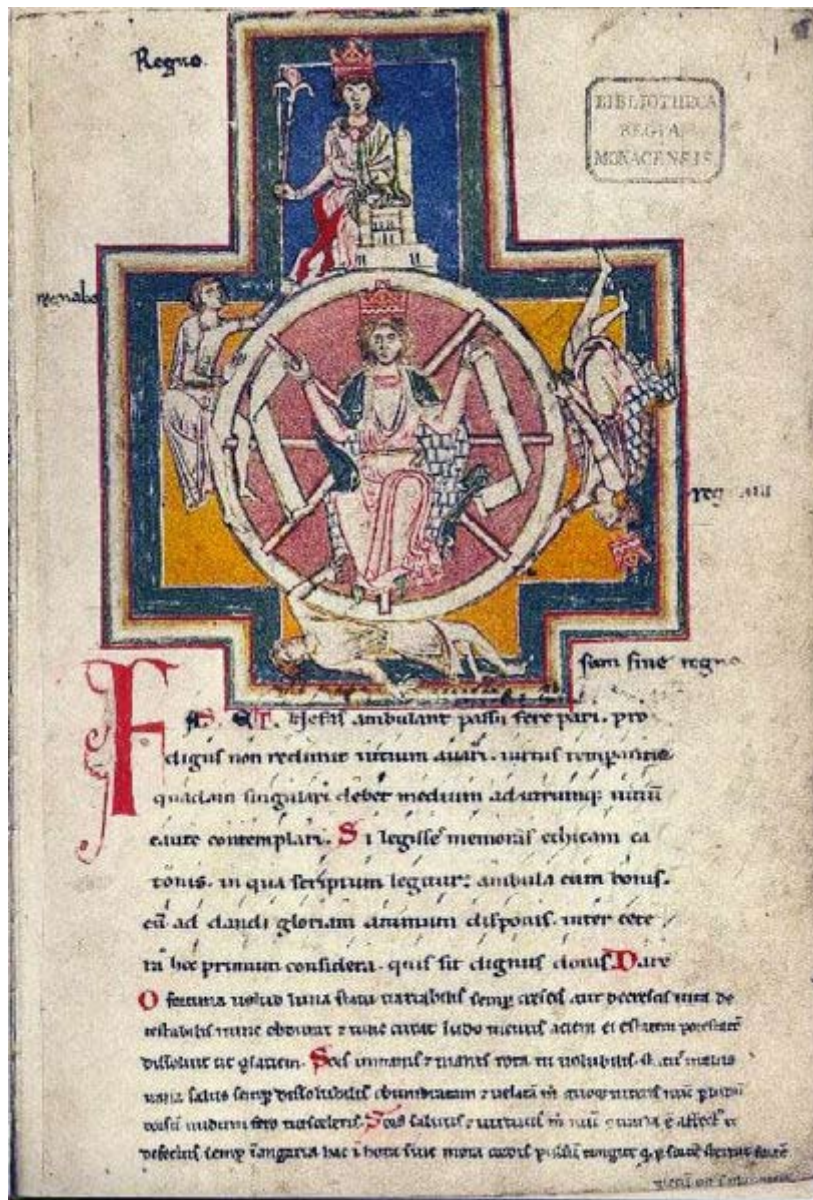 Regno.
BIBLIOTHECA
REGIA
MONACENSIS.
regnabo
sum sine regno
FAS ET nefas ambulant passu fere pari. pro
digus non redimit uitium auari. uirtus temperantia
quadam singulari debet medium ad utrumq; uitiū
caute contemplari. Si legisse memoras ethicam ca
tonis. in qua scriptum legitur: ambula cum bonis.
cū ad dandi gloriam animum disponis. inter cete
ra hoc primum considera. quis sit dignus donis. Dare
O fortuna uelud luna statu uariabilis semp crescis aut decrescis uita de
testabilis nunc obdurat & tunc curat ludo mentis aciem et egestatem potestatē
dissoluit ut glaciem. Sors immanis & inanis rota tu uolubilis. status malus
uana salus semp dissolubilis obumbratam & uelatam m quoq niteris nunc p ludum
dorsum nudum fero tui sceleris. Sors salutis & uirtutis m nunc
defectus semp ī angaria hac ī hora sine mora cordis pulsum tangite q p sortē sternit fortē